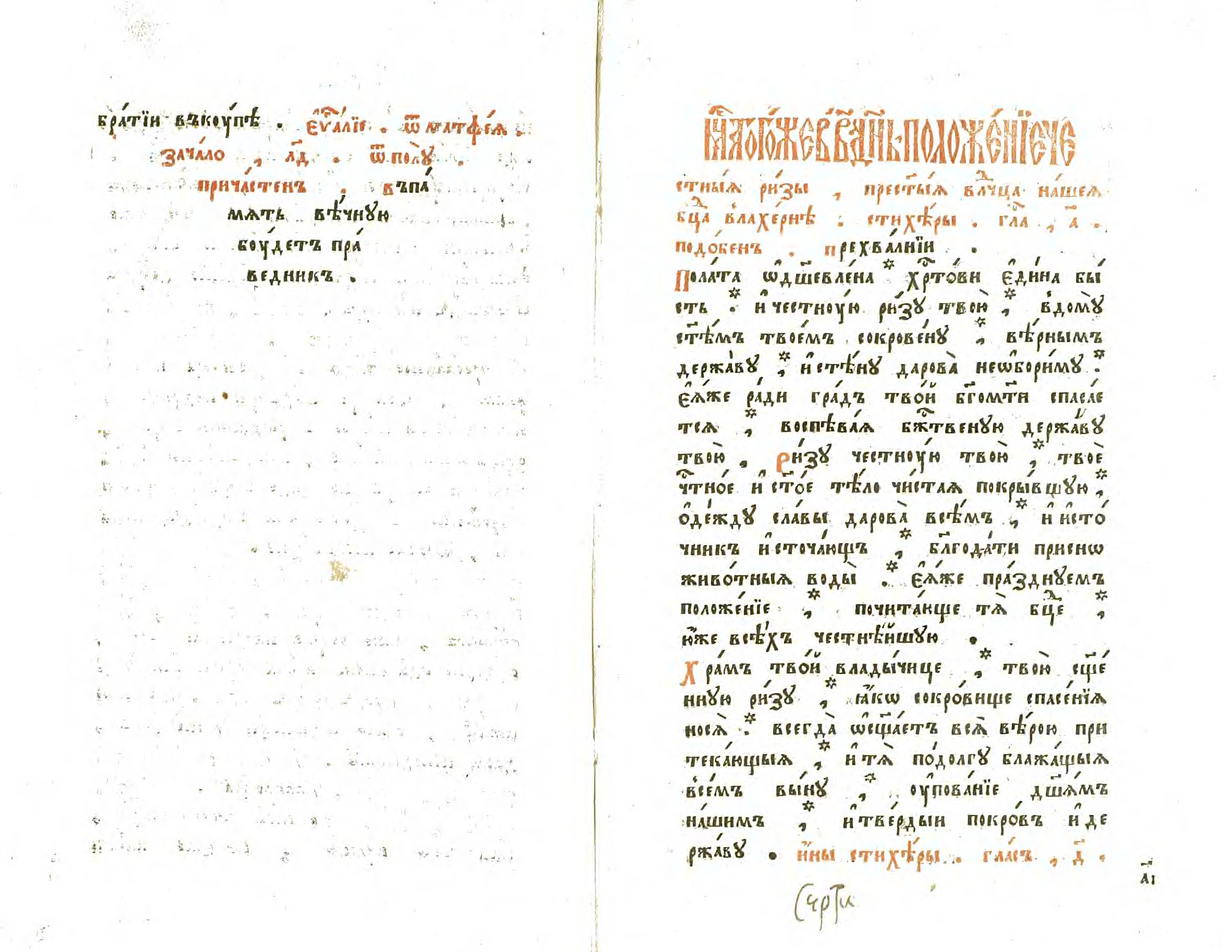 бра́тїи въкꙋ́пѣ . є҆ѵⷢ҇а́лїе . ѿ матфе́ѧ .
зача́ло , л҃д . ѿ полꙋ̀ .
прича́стенъ . въпа́
мѧть вѣ́чнꙋю
боу́детъ пра́
ведникъ .
мⷭ҇ца тогѡ́же в҃ в҃ дн҃ь положе́нїе че
стны́ѧ ри́зы , прест҃ы́ѧ влⷣчца на́шеѧ
бц҃а влахе́рнѣ : стихѣ́ры . гла , а҃ .
подо́бенъ . прехва́лнїи .
Пола́та ѡ҆дш҃евле́на * хрⷭ҇то́ви є҆ди́на бы́
сть * и҆ честноу́ю ри́зꙋ твою̀ , * вдомꙋ̀
ст҃ѣ́мъ твое́мъ сокрове́нꙋ , * вѣ́рнымъ
держа́вꙋ , * и҆ стѣ́нꙋ дарова̀ неѡ҆бори́мꙋ . *
є҆ѧ́же ра́ди гра́дъ тво́й бг҃омт҃и спаса́е
тсѧ , * воспѣва́ѧ бж҃твенꙋю держа́вꙋ
твою̀ . ри́зꙋ честноу́ю твою̀ , * твоѐ
чⷭ҇тно́е и҆ ст҃о́е тѣ́ло чи́стаѧ покры́вшꙋю , *
ѻ҆де́ждꙋ сла́вы дарова̀ всѣ́мъ , * и҆ и҆сто́
чникъ и҆сточа́ющъ , * блг҃ода́ти при́снѡ
живо́тныѧ воды̀ . * є҆ѧ́же пра́зднꙋемъ
положе́нїе , * почита́юще тѧ̀ бц҃е , *
ю҆́же всѣ́хъ честнѣ́йшꙋю .
Хра́мъ тво́й влады́чице , * твою̀ сщ҃е́
ннꙋю ри́зꙋ , * ꙗ҆́кѡ сокро́вище спасе́нїѧ
носѧ̀ . * всегда̀ ѡ҆сщ҃а́етъ всѧ̀ вѣ́рою при
тека́ющыѧ , * и҆ тѧ̀ подо́лгꙋ блажа́щыѧ
всѣ́мъ вы́нꙋ , * оупова́нїе дш҃а́мъ
на́шимъ , * и҆ тве́рдыи покро́въ и҆ де
ржа́вꙋ . и҆́ны стихѣ́ры . гла́съ , д҃ .
а҃і